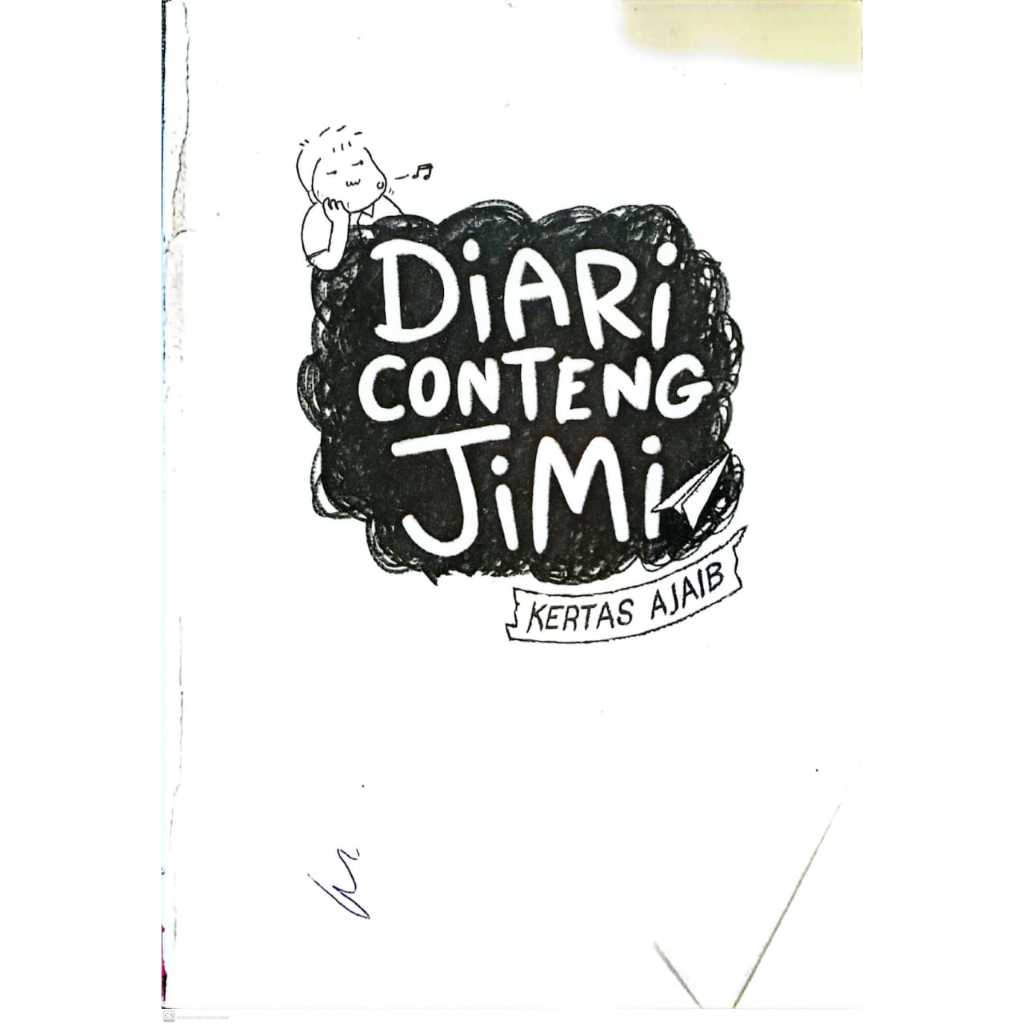 DiARi
CONTENG
JiMi
KERTAS AJAIB